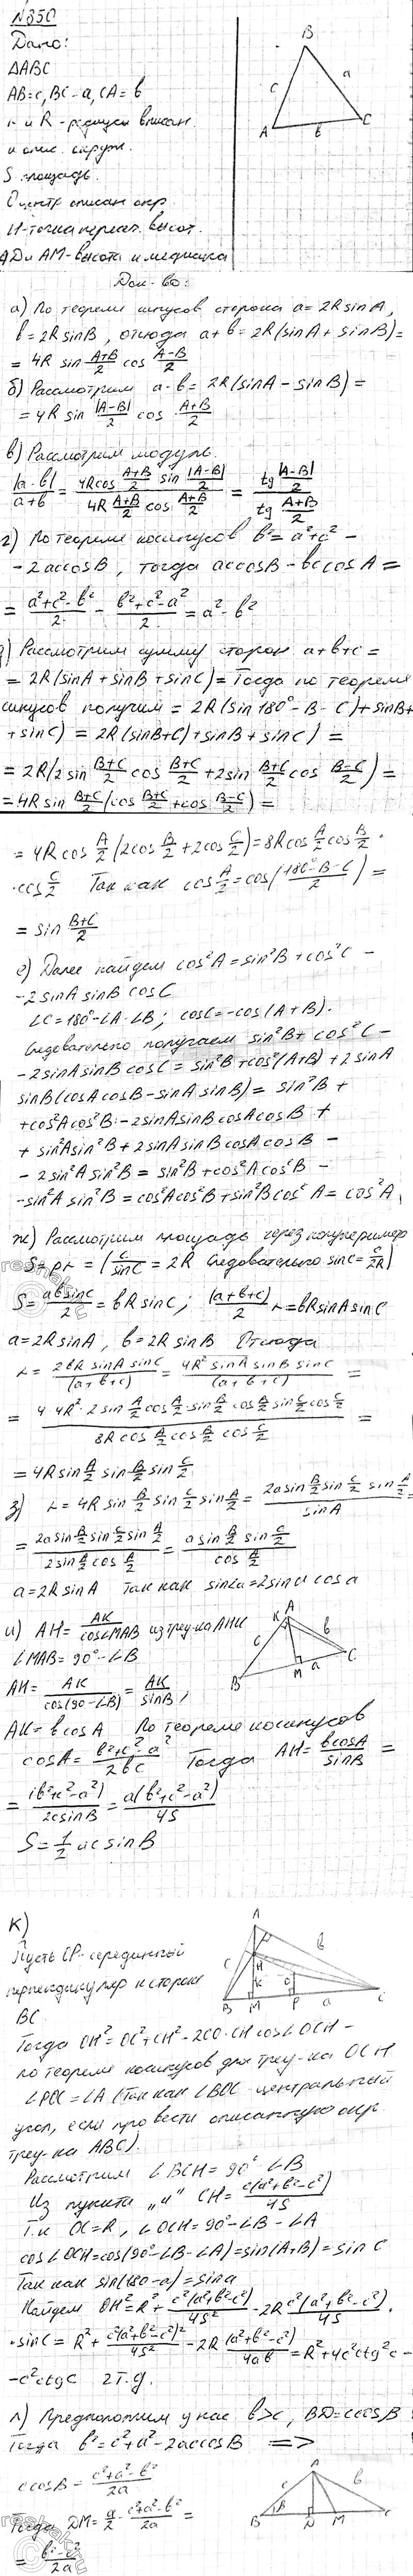 №850
Дано:
ΔABC
AB=c, BC=a, CA=b
r и R - радиусы вписан.
и опис. окруж.
S площадь.
O центр описан окр.
H-точка пересеч. высот.
AD и AM-высота и медиана
B
c
a
A
b
C
Док-во:
а) По теореме синусов сторона a=2R sinA,
b=2R sinB, откуда a+b=2R(sinA+sinB)=
=4R sin (A+B)/2 cos (A-B)/2
б) Рассмотрим a-b=2R(sinA-sinB)=
=4R sin |A-B|/2 cos (A+B)/2
в) Рассмотрим модуль.
|a-b|/(a+b) = (4R cos (A+B)/2 sin |A-B|/2)/(4R (A+B)/2 cos (A+B)/2) = (tg |A-B|/2)/(tg (A+B)/2)
г) По теореме косинусов b²=a²+c²-
-2accosB, тогда accosB-bccosA=
= (a²+c²-b²)/2 - (b²+c²-a²)/2 = a²-b²
д) Рассмотрим сумму сторон a+b+c=
=2R(sinA+sinB+sinC)= Тогда по теореме
синусов получим =2R(sin180°-B-C)+sinB+
+sinC)=2R(sinB+C)+sinB+sinC)=
=2R(2sin (B+C)/2 cos (B+C)/2 + 2sin (B+C)/2 cos (B-C)/2)=
=4R sin (B+C)/2 (cos (B+C)/2 + cos (B-C)/2)=
=4R cos A/2 (2cos B/2 + 2cos C/2)=8R cos A/2 cos B/2 ·
·cos C/2 Так как cos A/2 = cos((180°-B-C)/2)=
= sin (B+C)/2
е) Далее найдем cos²A=sin²B+cos²C-
-2sinA sinB cosC
∠C=180°-∠A-∠B; cosC=-cos(A+B).
Следовательно получаем sin²B+cos²C-
-2sinAsinBcosC=sin²B+cos²(A+B)+2sinA
sinB(cosAcosB-sinAsinB)=sin²B+
+cos²Acos²B-2sinAsinBcosAcosB+
+sin²Asin²B+2sinAsinBcosAcosB-
-2sin²Asin²B=sin²B+cos²Acos²B-
-sin²Asin²B=cos²Acos²B+sin²Bcos²A=cos²A
ж) Рассмотрим площадь через полупериметр
S=pr=(c/sinC=2R Следовательно sinC=c/2R)
S=(ab sinC)/2=bR sinC; (a+b+c)/2 r=bRsinAsinC
a=2R sinA, b=2R sinB Откуда
r=(2bR sinA sinC)/(a+b+c)=(4R² sinA sinB sinC)/(a+b+c)=
=(4·4R²·2sin A/2 cos A/2 ·sin B/2 cos B/2 sin C/2 cos C/2)/(8R cos A/2 cos B/2 cos C/2)=
=4R sin A/2 sin B/2 sin C/2
з) r=4R sin B/2 sin C/2 sin A/2 = (2a sin B/2 sin C/2 sin A/2)/sinA=
=(2a sin B/2 sin C/2 sin A/2)/(2sin A/2 cos A/2)=(a sin B/2 sin C/2)/(cos A/2)
a=2R sinA так как sin2a=2sin a cos a
и) AH=AK/cos∠MAB из треу-ка AHK
∠MAB=90°-∠B
AH=AK/cos(90-∠B)=AK/sinB,
A
K
c
b
B
M
a
C
AK=bcosA По теореме косинусов
cosA=(b²+c²-a²)/2bc Тогда AH=(bcosA)/sinB=
=(b²+c²-a²)/(2csinB)=a(b²+c²-a²)/4S
S=1/2 ac sinB
к)
Пусть CP-серединный
перпендикуляр к стороне
BC.
A
c
b
H
K
O
B
M
P
a
C
Тогда OH²=OC²+CH²-2CO·CHcos∠OCH-
по теореме косинусов для треу-ка OCH
∠POC=∠A (Так как ∠BOC-центральный
угол, если провести описанную окр.
треу-ка ABC).
Рассмотрим ∠BCH=90°-∠B
Из пункта „и" CH=c(a²+b²-c²)/4S
Т.к OC=R, ∠OCH=90°-∠B-∠A
cos∠OCH=cos(90°-∠B-∠A)=sin(A+B)=sinC
Так как sin(180-a)=sina
Найдем OH²=R²+c²(a²+b²-c²)/4S²-2R c²(a²+b²-c²)/4S·
·sinC=R²+c²(a²+b²-c²)²/4S²-2R (a²+b²-c²)/4ab=R²+4c²ctg²c-
-c²ctgC 2т.д.
л) Предположим у нас b>c, BD=ccosB
Тогда b²=c²+a²-2accosB =>
ccosB=(c²+a²-b²)/2a
Тогда DM=a/2-(c²+a²-b²)/2a=
=(b²-c²)/2a
A
c
b
B
D
M
C